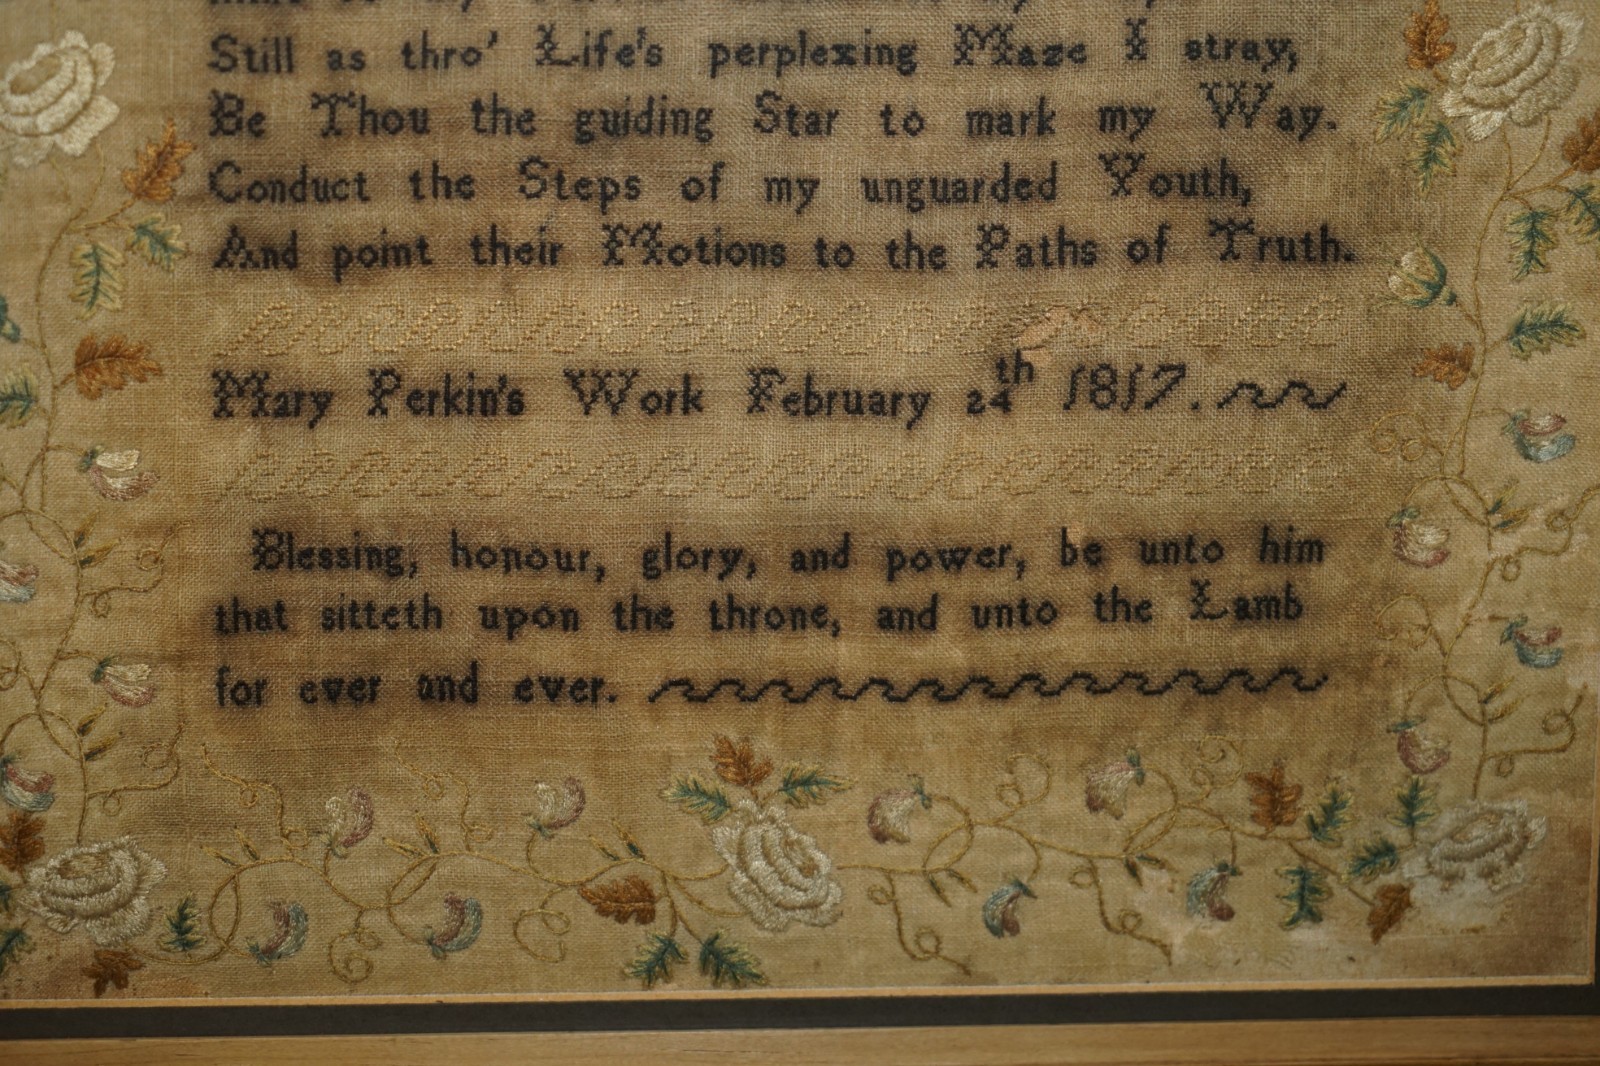 Still as thro' Life's perplexing Maze I stray,
Be Thou the guiding Star to mark my Way.
Conduct the Steps of my unguarded Youth,
And point their Motions to the Paths of Truth.
Mary Perkin's Work February 24th 1817.
Blessing, honour, glory, and power, be unto him
that sitteth upon the throne, and unto the Lamb
for ever and ever.